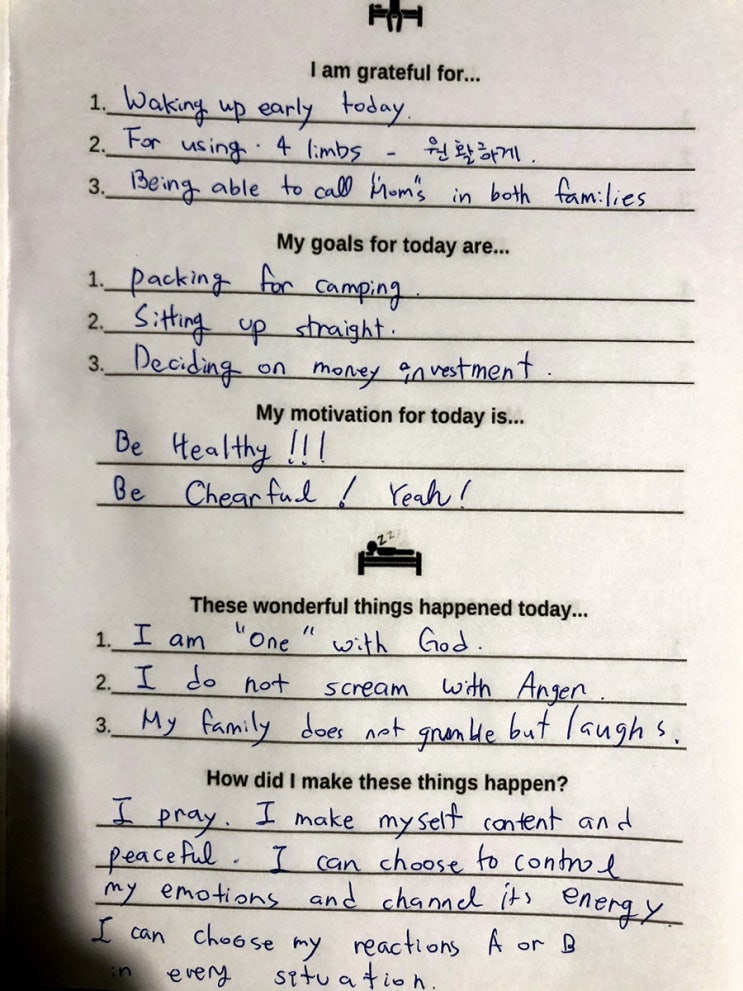 I am grateful for...
1. Waking up early today.
2. For using 4 limbs - 원활하게.
3. Being able to call "Mom"s in both families
My goals for today are...
1. packing for camping.
2. Sitting up straight.
3. Deciding on money investment.
My motivation for today is...
Be Healthy!!!
Be Chearful! Yeah!
zzz
These wonderful things happened today...
1. I am "One" with God.
2. I do not scream with Anger.
3. My family does not grumble but laughs.
How did I make these things happen?
I pray. I make myself content and
peaceful. I can choose to control
my emotions and channel its energy
I can choose my reactions A or B
in every situation.